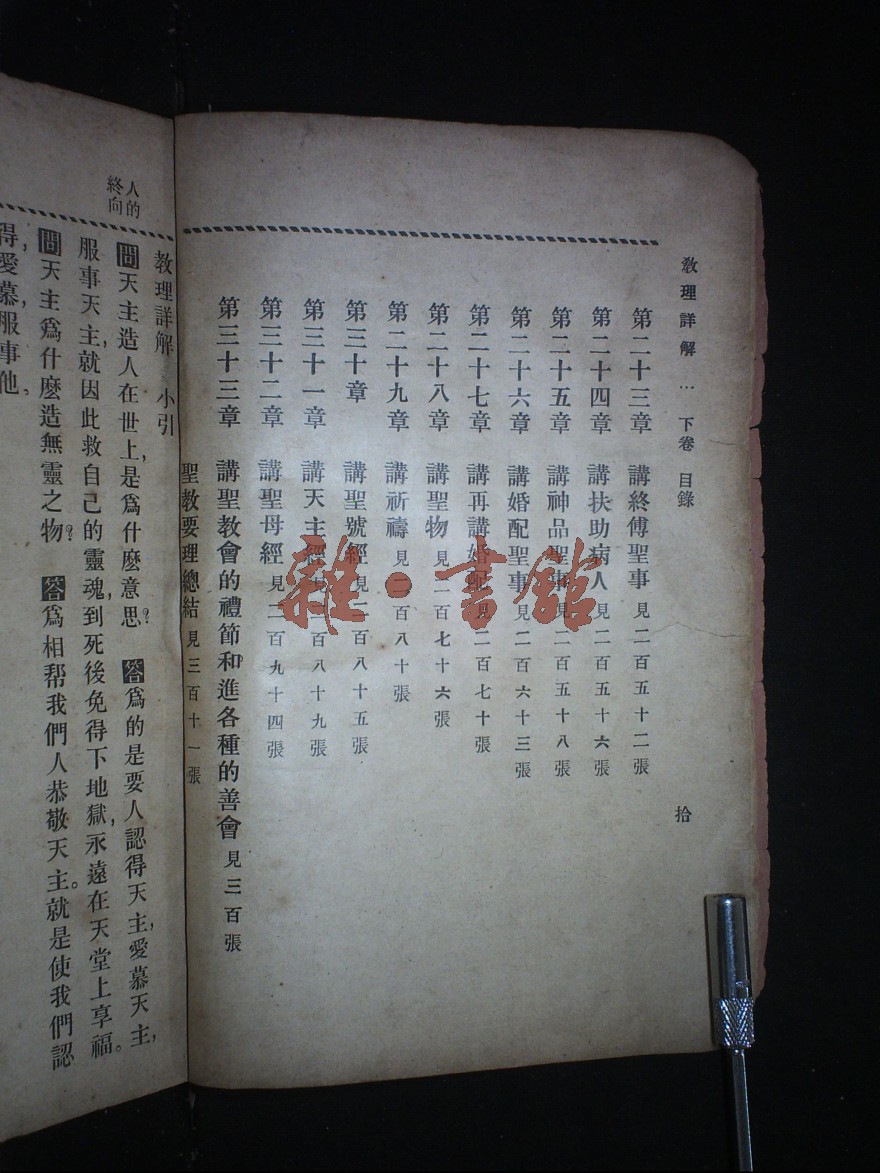 教理詳解 … 下卷 目錄
拾
第二十三章 講終傅聖事 見二百五十二張
第二十四章 講扶助病人 見二百五十六張
第二十五章 講神品聖事 見二百五十八張
第二十六章 講婚配聖事 見二百六十三張
第二十七章 講再講婚配 見二百七十張
第二十八章 講聖物 見二百七十六張
第二十九章 講祈禱 見二百八十張
第三十章 講聖號經 見二百八十五張
第三十一章 講天主經 見二百八十九張
第三十二章 講聖母經 見二百九十四張
第三十三章 講聖教會的禮節和進各種的善會 見三百張
聖教要理總結 見三百十一張
雜·書館
人的
終向
教理詳解 小引
問天主造人在世上,是爲什麽意思? 答爲的是要人認得天主,愛慕天主,
服事天主,就因此救自己的靈魂,到死後免得下地獄,永遠在天堂上享福。
問天主爲什麽造無靈之物? 答爲相帮我們人恭敬天主。就是使我們認
得,愛慕,服事他。